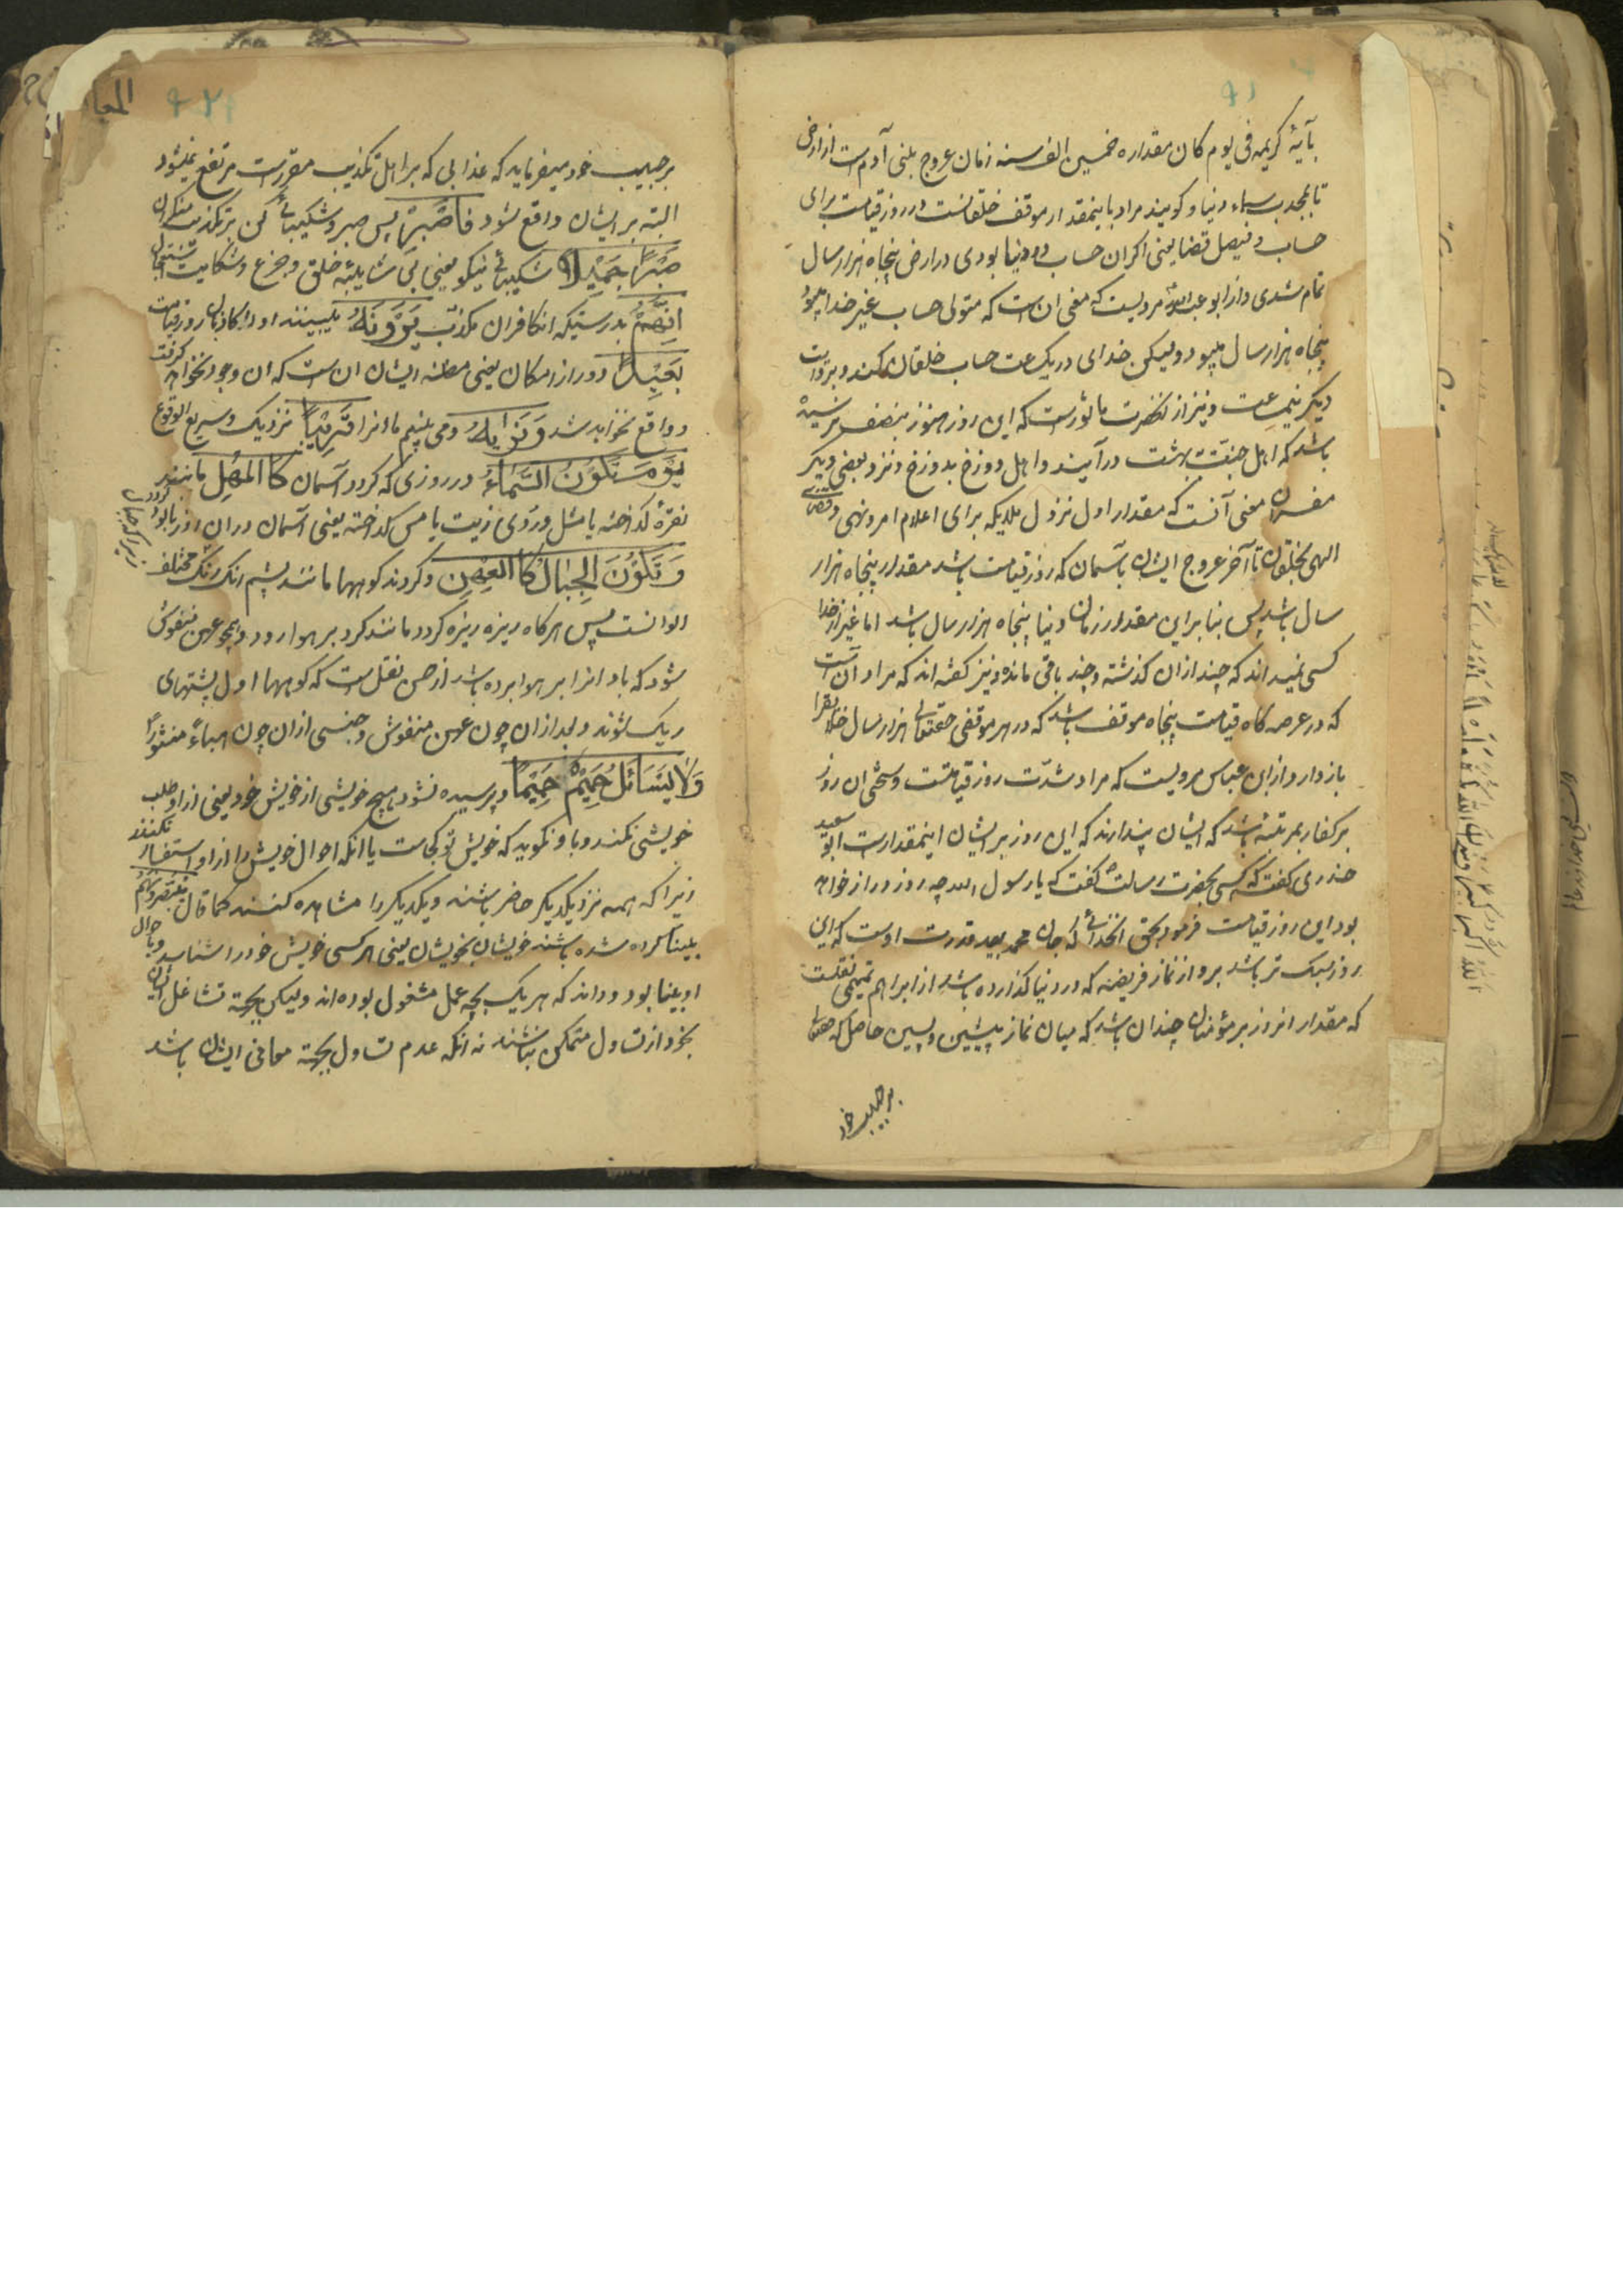 بآیهٔ کریمه فی یوم کان مقداره خمسین الف سنه زمان عروج بنی آدم است از ارض
تا بمحدب سماء دنیا و کویند مراد باینمقدار موقف خلقانست در روز قیامت برای
حساب و فیصل قضا یعنی اکر ان حساب در دنیا بودی در ارض پنجاه هزار سال
تمام شدی و از ابو عبدالله مرویست که معنی ان است که متولی حساب غیر خدا میبود
پنجاه هزار سال میبود ولیکن خدای در یک ساعت حساب خلقان میکند و بروایت
دیکر نیمساعت و نیز از نحضرت ماثورست که این روز هنوز بنصف نرسیده
باشد که اهل جنت بهشت درآیند و اهل دوزخ بدوزخ و نزد بعضی دیکر
مفسران معنی آنست که مقدار اول نزول ملایکه برای اعلام امر و نهی و قضای
الهی بخلقان تا آخر عروج ایشان بآسمان که روز قیامت باشد مقدار پنجاه هزار
سال باشد پس بنا براین مقدار زمان دنیا پنجاه هزار سال باشد اما غیر از خدا
کسی نمیداند که چند ازان کذشته و چند باقی مانده و نیز کفته اند که مراد آن است
که در عرصه کاه قیامت پنجاه موقف باشد که در هر موقفی حقتعالی هزار سال خلایق را
بازدارد و از ابن عباس مرویست که مراد شدت روز قیامتست و سختی ان روز
بر کفار بمرتبه باشد که ایشان پندارند که این روز بر ایشان اینمقدارست ابو سعید
خدری کفت که کسی بحضرت رسالت کفت که یا رسول الله چه روز دراز خواهد
بود این روز قیامت فرمود بحق انخدائی که جان محمد بید قدرت اوست که این
روز سبک تر باشد برو از نماز فریضه که در دنیا کذارده باشد از ابراهیم تمیمی نقلست
که مقدار انروز بر مؤمنان چندان باشد که میان نماز پیشین و پسین حاصل که حقتعالی
بر حبیب خود
بر حبیب خود میفرماید که عذابی که بر اهل تکذیب مقررست مرتفع نمیشود
البته بر ایشان واقع شود فَاصْبِرْ پس صبر و شکیبائی کن بر تکذیب منکران
صَبْرًا جَمِیلًا شکیبائی نیکو یعنی بی شایبه خلق و جزع و شکایت و استعجال
اِنَّهُمْ بدرستیکه انکافران مکذب یَرَوْنَهُ میبینند او را کاذبان روز قیامت
بَعِیدًا دور از امکان یعنی مظنه ایشان ان است که ان وجود نخواهد کرفت
و واقع نخواهد شد وَنَرٰیهُ و می بینیم ما انرا قَرِیبًا نزدیک و سریع الوقوع
یَوْمَ تَکُونُ السَّمَآءُ در روزی که کردد آسمان کَالْمُهْلِ مانند
نقرهٔ کداخته یا مثل دردی زیت یا مس کداخته یعنی آسمان دران روز
وَتَکُونُ الْجِبَالُ کَالْعِهْنِ و کردند کوهها مانند پشم رنک رنک مختلف
الوانست پس هرکاه ریزه ریزه کردد مانند کرد بر هوا رود و همچو عهن منفوش
شود که باد انرا بر هوا برده باشد از حسن نقلست که کوهها اول پشتهای
ریک شوند و بعد ازان چون عهن منفوش و جنسی ازان چون هباءً منثوراً
وَلَا یَسْاَلُ حَمِیمٌ حَمِیمًا و پرسیده نشود هیچ خویشی از خویش خود یعنی از او طلب
خویشی نکنند و با و نکوید که خویش تو کجاست یا انکه احوال خویش را از او استفسار نکنند
زیرا که همه نزد یکدیکر حاضر باشند و یکدیکر را مشاهده کنند کما قال یُبَصَّرُونَهُمْ
بینا کرده شده باشند خویشان بخویشان یعنی هر کسی خویش خود را شناسد و باحوال
او بینا بود و داند که هر یک بچه عمل مشغول بوده اند ولیکن بجهة تشاغل ایشان
بخود از تساول متمکن نباشند نه انکه عدم تساول بجهة معافی ایشان باشد